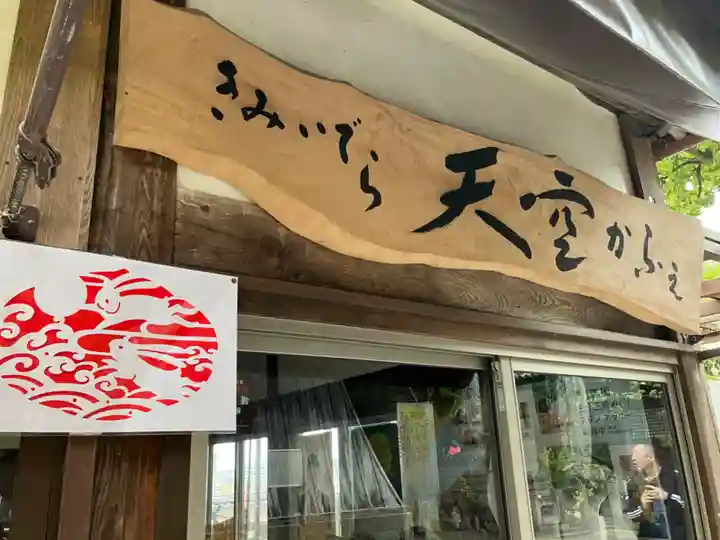 きみいでら 天空かふぇ